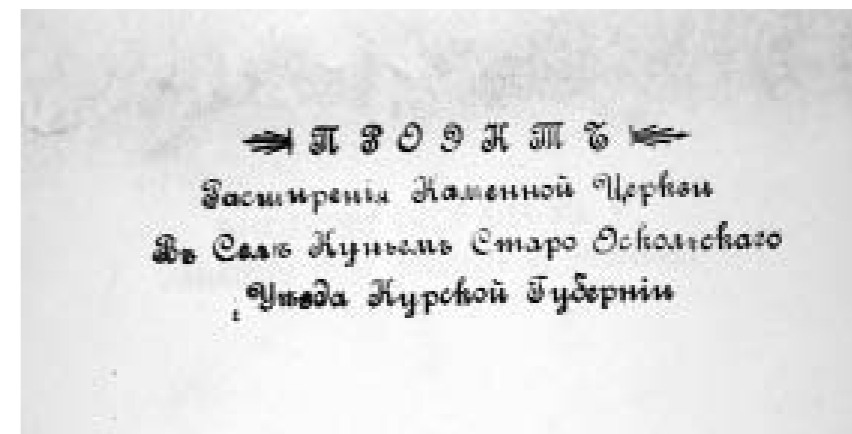 ПРОЭКТЪ
Расширенія Каменной Церкви
Въ Селѣ Куньемъ Старо Оскольскаго
Уѣзда Курской Губерніи